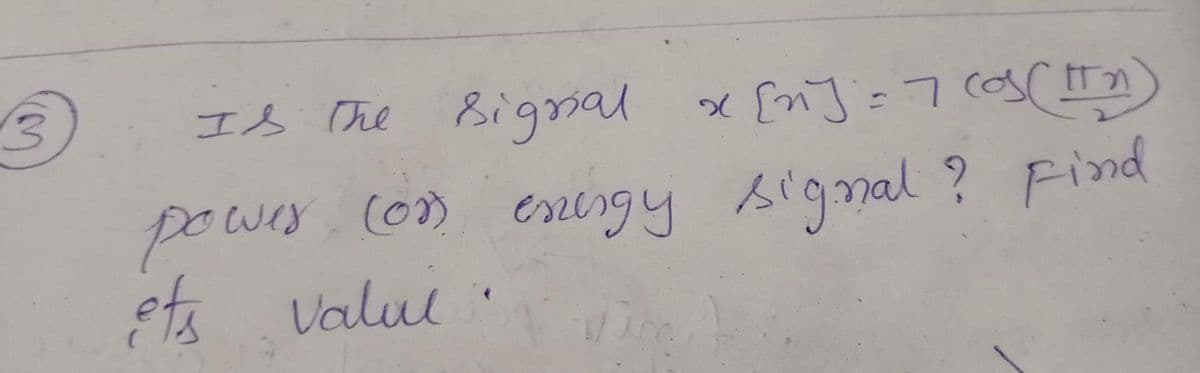 3 Is The signal x[n] = 7 cos(πn/2)
power (or) energy signal? Find
its value.